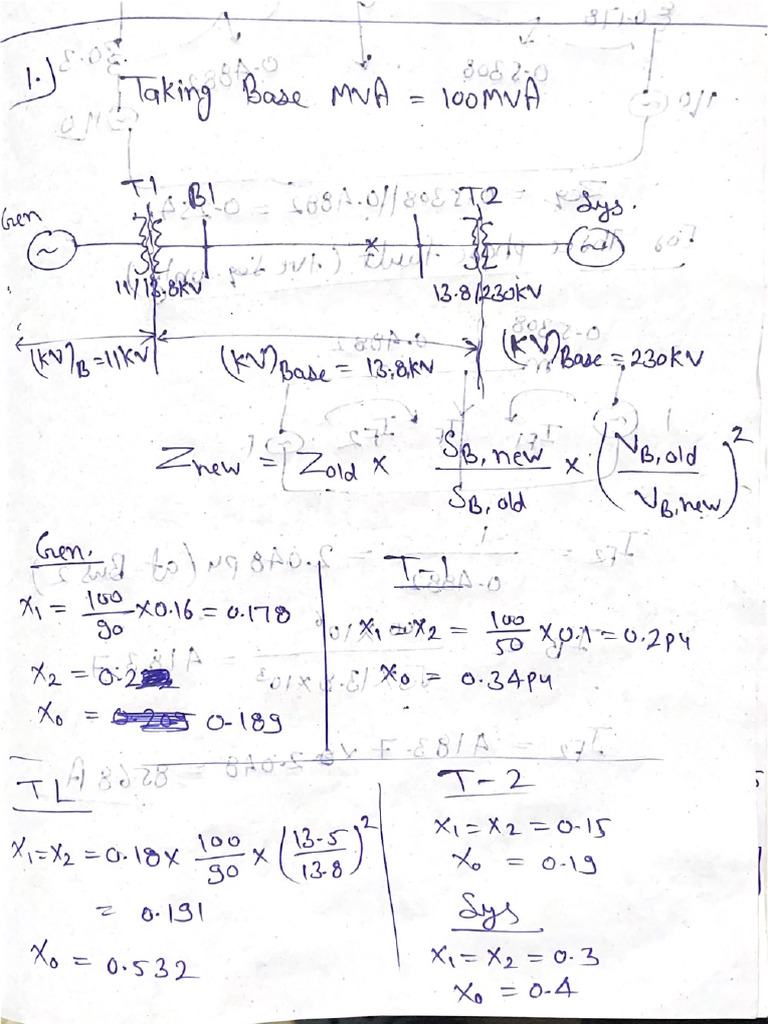 1.) Taking Base MVA = 100MVA
T1 B1 T2 Sys.
Gen
~ ~
11/13.8kV 13.8/230kV
(KV)B = 11KV (KV)Base = 13.8kN (KV)Base = 230kV
Znew = Zold × SB, new / SB, old × (VB, old / VB, new)²
Gen.
X1 = 100/90 × 0.16 = 0.178
X2 = 0.2
X0 = 0.189
T-1
X1 = X2 = 100/50 × 0.1 = 0.2pu
X0 = 0.34pu
TL
X1 = X2 = 0.18 × 100/90 × (13.5/13.8)²
= 0.191
X0 = 0.532
T-2
X1 = X2 = 0.15
X0 = 0.19
Sys
X1 = X2 = 0.3
X0 = 0.4